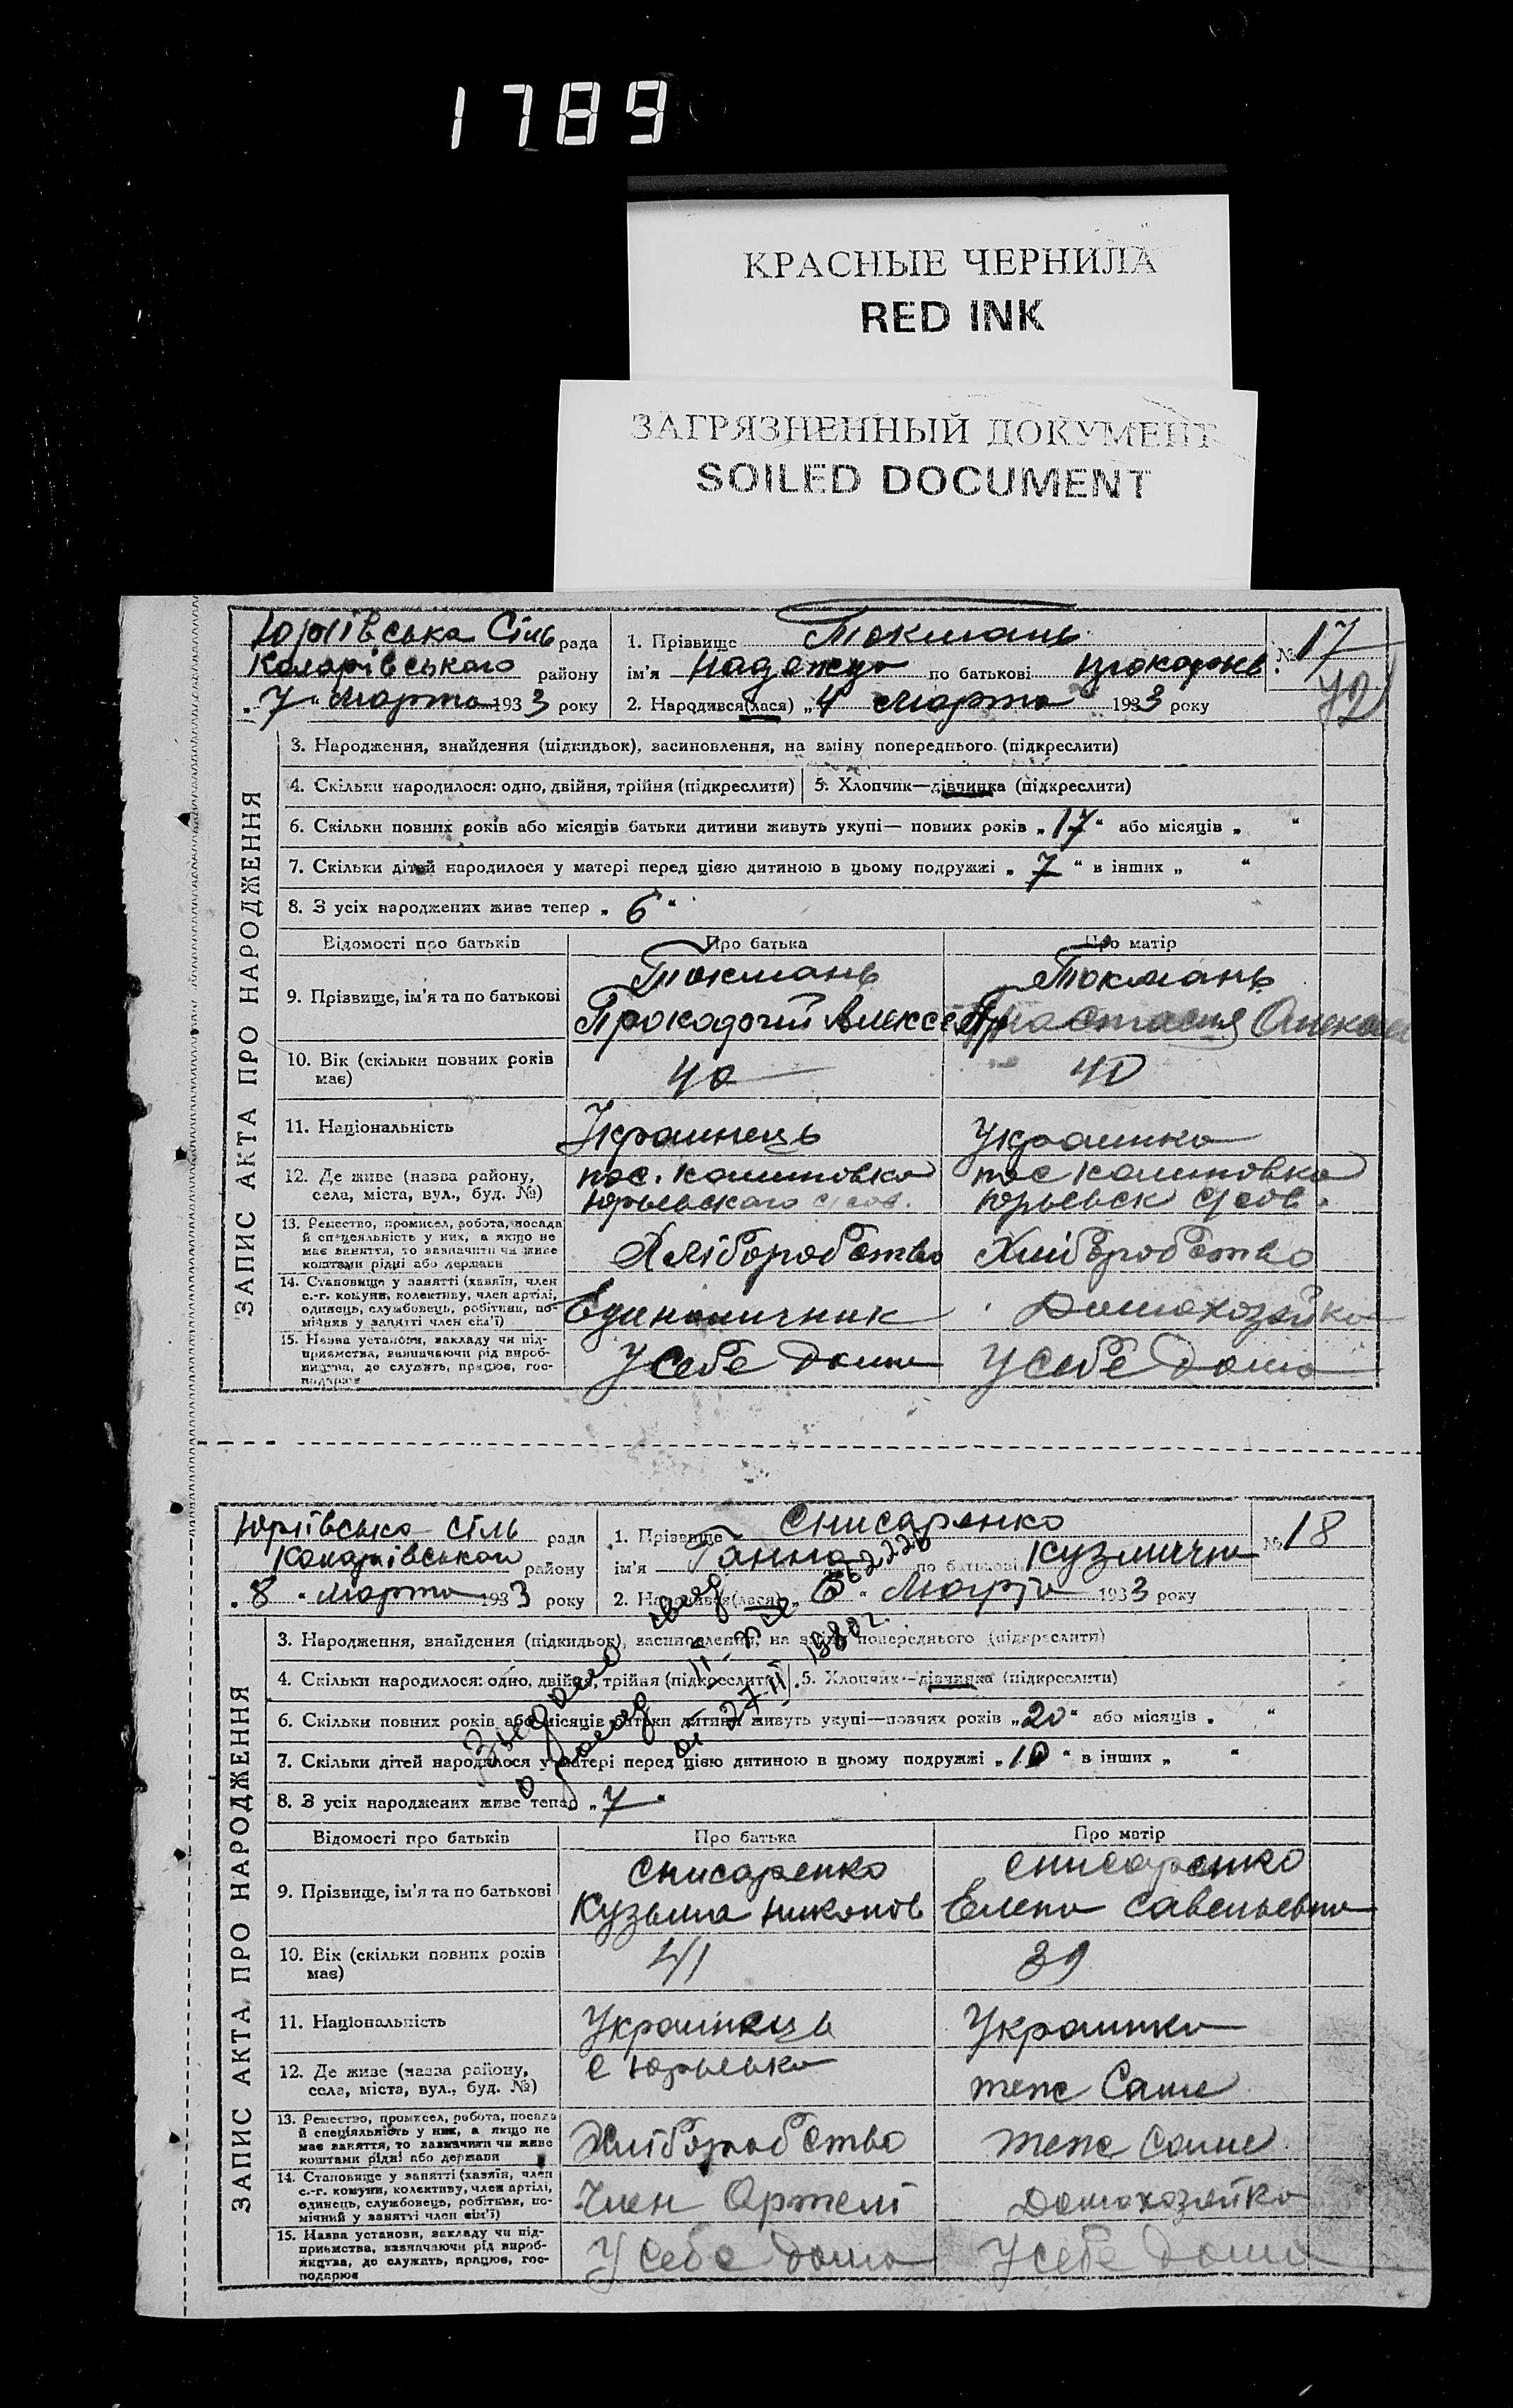 1789
КРАСНЫЕ ЧЕРНИЛА
RED INK
ЗАГРЯЗНЕННЫЙ ДОКУМЕНТ
SOILED DOCUMENT
ЗАПИС АКТА ПРО НАРОДЖЕННЯ
Юріївська Сіль рада
Коларівського району
„7“ марта 1933 року
1. Прізвище Токмань
ім'я Надежда по батькові
2. Народився(лася) „4“ марта 1933 року
№ 17
72
3. Народження, знайдення (підкидьок), засиновлення, на зміну попереднього (підкреслити)
4. Скільки народилося: одно, двійня, трійня (підкреслити)
5. Хлопчик—дівчинка (підкреслити)
6. Скільки повних років або місяців батьки дитини живуть укупі— повних років „17“ або місяців „ “
7. Скільки дітей народилося у матері перед цією дитиною в цьому подружжі „7“ в інших „ “
8. З усіх народжених живе тепер „6“
Відомості про батьків Про батька Про матір
9. Прізвище, ім'я та по батькові
Токмань
Прокофий Алексее
Токмань
Анастасия
10. Вік (скільки повних років має) 40 40
11. Національність Украинець Украинка
12. Де живе (назва району, села, міста, вул., буд. №)
пос. Калиновка
Юрьевского с/сов.
пос Калиновка
Юрьевск с/сов.
13. Ремество, промисел, робота, посада
й спеціяльність у них, а якщо не
має заняття, то зазначити чи живе
коштами рідні або держави
Хліборобство Хліборобство
14. Становище у занятті (хазяїн, член
с.-г. комуни, колективу, член артілі,
одинець, службовець, робітник, по-
мічний у занятті член сім'ї)
Единоличник Домохозяйка
15. Назва установи, закладу чи під-
приємства, вазначаючи рід вироб-
ництва, де служить, працює, гос-
подарює
У себе дома У себе дома
ЗАПИС АКТА ПРО НАРОДЖЕННЯ
Юріївська сіль рада
Коларівського району
„8“ марта 1933 року
1. Прізвище Снисаренко
ім'я Ганна по батькові Кузмична
2. Народився(лася) „6“ Марта 1933 року
№ 18
Выдано свид
о рожд
от 27.II.1980г.
3. Народження, знайдення (підкидьок), засиновлення, на зміну попереднього (підкреслити)
4. Скільки народилося: одно, двійня, трійня (підкреслити)
5. Хлопчик—дівчинка (підкреслити)
6. Скільки повних років або місяців батьки дитини живуть укупі—повних років „20“ або місяців „ “
7. Скільки дітей народилося у матері перед цією дитиною в цьому подружжі „10“ в інших „ “
8. З усіх народжених живе тепер „7“
Відомості про батьків Про батька Про матір
9. Прізвище, ім'я та по батькові
Снисаренко
Кузьма Никонов
Снисаренко
Елена Савельевна
10. Вік (скільки повних років має) 41 39
11. Національність Украинець Украинка
12. Де живе (назва району, села, міста, вул., буд. №)
с Юрьевка
теже Саме
13. Ремество, промисел, робота, посада
й спеціяльність у них, а якщо не
має заняття, то зазначити чи живе
коштами рідні або держави
Хліборобство теже Саме
14. Становище у занятті (хазяїн, член
с.-г. комуни, колективу, член артілі,
одинець, службовець, робітник, по-
мічний у занятті член сім'ї)
Член Артелі Домохозяйка
15. Назва установи, закладу чи під-
приємства, вазначаючи рід вироб-
ництва, де служить, працює, гос-
подарює
У себе дома У себе дома